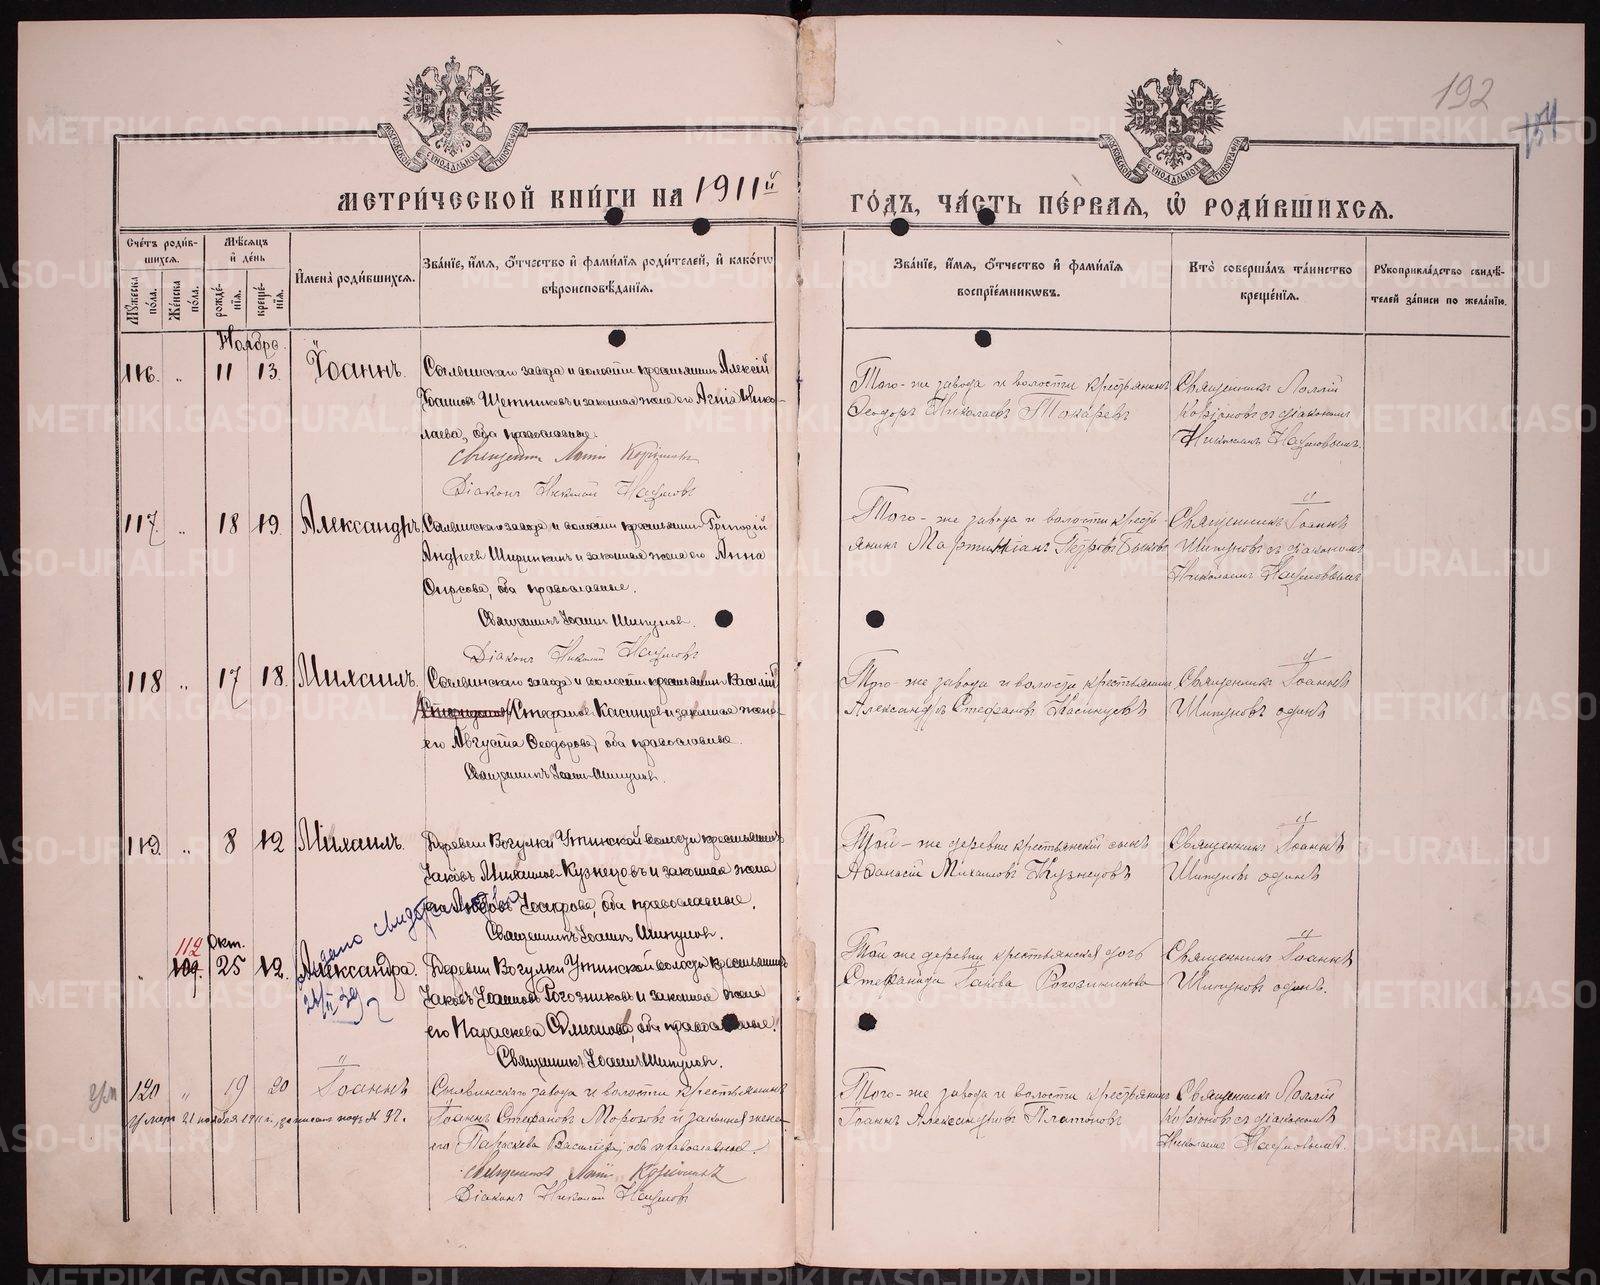 192
154
МОСКОВСКОЙ СѴНОДАЛЬНОЙ ТИПОГРАФІИ
МОСКОВСКОЙ СѴНОДАЛЬНОЙ ТИПОГРАФІИ
МЕТРИ́ЧЕСКОЙ КНИ́ГИ НА 1911й
ГО́ДЪ, ЧА́СТЬ ПЕ́РВАЯ, Ѡ РОДИ́ВШИХСЯ.
Сче́тъ роди́в-
шихся.
Мѹ́жеска по́ла.
Же́нска по́ла.
Мѣ́сяцъ
и҆ де́нь
рожде́-
нїя.
креще́-
нїя.
И҆мена̀ роди́вшихся.
Зва́нїе, и҆́мя, ѻ҆́тчество и҆ фами́лїя роди́телей, и҆ како́гѡ
вѣроисповѣ́данїя.
Зва́нїе, и҆́мя, ѻ҆́тчество и҆ фами́лїя
воспрїе́мникѡвъ.
Кто̀ соверша́лъ та́инство
креще́нїя.
Рѹкоприкла́дство свидѣ́-
телей за́писи по жела́нїю.
Ноября.
116. „ 11 13. Іоаннъ.
Сылвинскаго завода и волости крестьянинъ Алексій
Іоанновъ Щетниковъ и законная жена его Агнія Нико-
лаева, оба православные.
Священникъ Коровинъ
Діаконъ Николай Наумовъ
Того-же завода и волости крестьянинъ
Ѳеодоръ Николаевъ Токаревъ
Священникъ
съ діакономъ
Николаемъ Наумовымъ.
117. „ 18 19. Александръ.
Сылвинскаго завода и волости крестьянинъ Григорій
Андреевъ Ширинкинъ и законная жена его Анна
Фирсова, оба православные.
Священникъ Іоаннъ Шипуновъ.
Діаконъ Николай Наумовъ
Того-же завода и волости кресть-
янинъ Мартиніанъ Петровъ Быковъ
Священникъ Іоаннъ
Шипуновъ съ діакономъ
Николаемъ Наумовымъ
118 „ 17 18. Михаилъ.
Сылвинскаго завода и волости крестьянинъ Василій
Стефановъ и законная жена
его Августа Ѳеодорова, оба православные.
Священникъ Іоаннъ Шипуновъ.
Того-же завода и волости крестьянинъ
Александръ Стефановъ
Священникъ Іоаннъ
Шипуновъ одинъ
119. „ 8 12 Михаилъ.
Деревни Вогулки Уткинской волости крестьянинъ
Іаковъ Михаиловъ Кузнецовъ и законная жена
его Любовь, оба православные.
Священникъ Іоаннъ Шипуновъ.
Той-же деревни крестьянскій сынъ
Аѳанасій Михаиловъ Кузнецовъ
Священникъ Іоаннъ
Шипуновъ одинъ
112 Окт.
„ 109. 25 12. Александра.
Деревни Вогулки Уткинской волости крестьянинъ
Іаковъ Іоанновъ Рогозниковъ и законная жена
его Параскева Симеонова, оба православные.
Священникъ Іоаннъ Шипуновъ.
Той же деревни крестьянская дочь
Стефанида Іакова Рогозникова
Священникъ Іоаннъ
Шипуновъ одинъ.
120 „ 19 20 Іоаннъ
Умеръ 21 ноября 1911 г., записанъ подъ № 92.
Сылвинскаго завода и волости крестьянинъ
Іоаннъ Стефановъ Морозовъ и законная жена
его Параскева Васильева, оба православные.
Священникъ
Діаконъ Николай Наумовъ
Того-же завода и волости крестьянинъ
Іоаннъ Александровъ Платоновъ
Священникъ
съ діакономъ
Николаемъ Наумовымъ.
METRIKI.GASO-URAL.RU